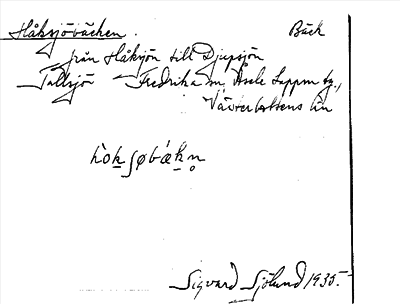 Håksjöbäcken. Bäck
från Håksjön till Djupsjön
Tallsjö Fredrika sn, Åsele Lappm. tg.,
Västerbottens län
Sigvard Sjölund 1935.